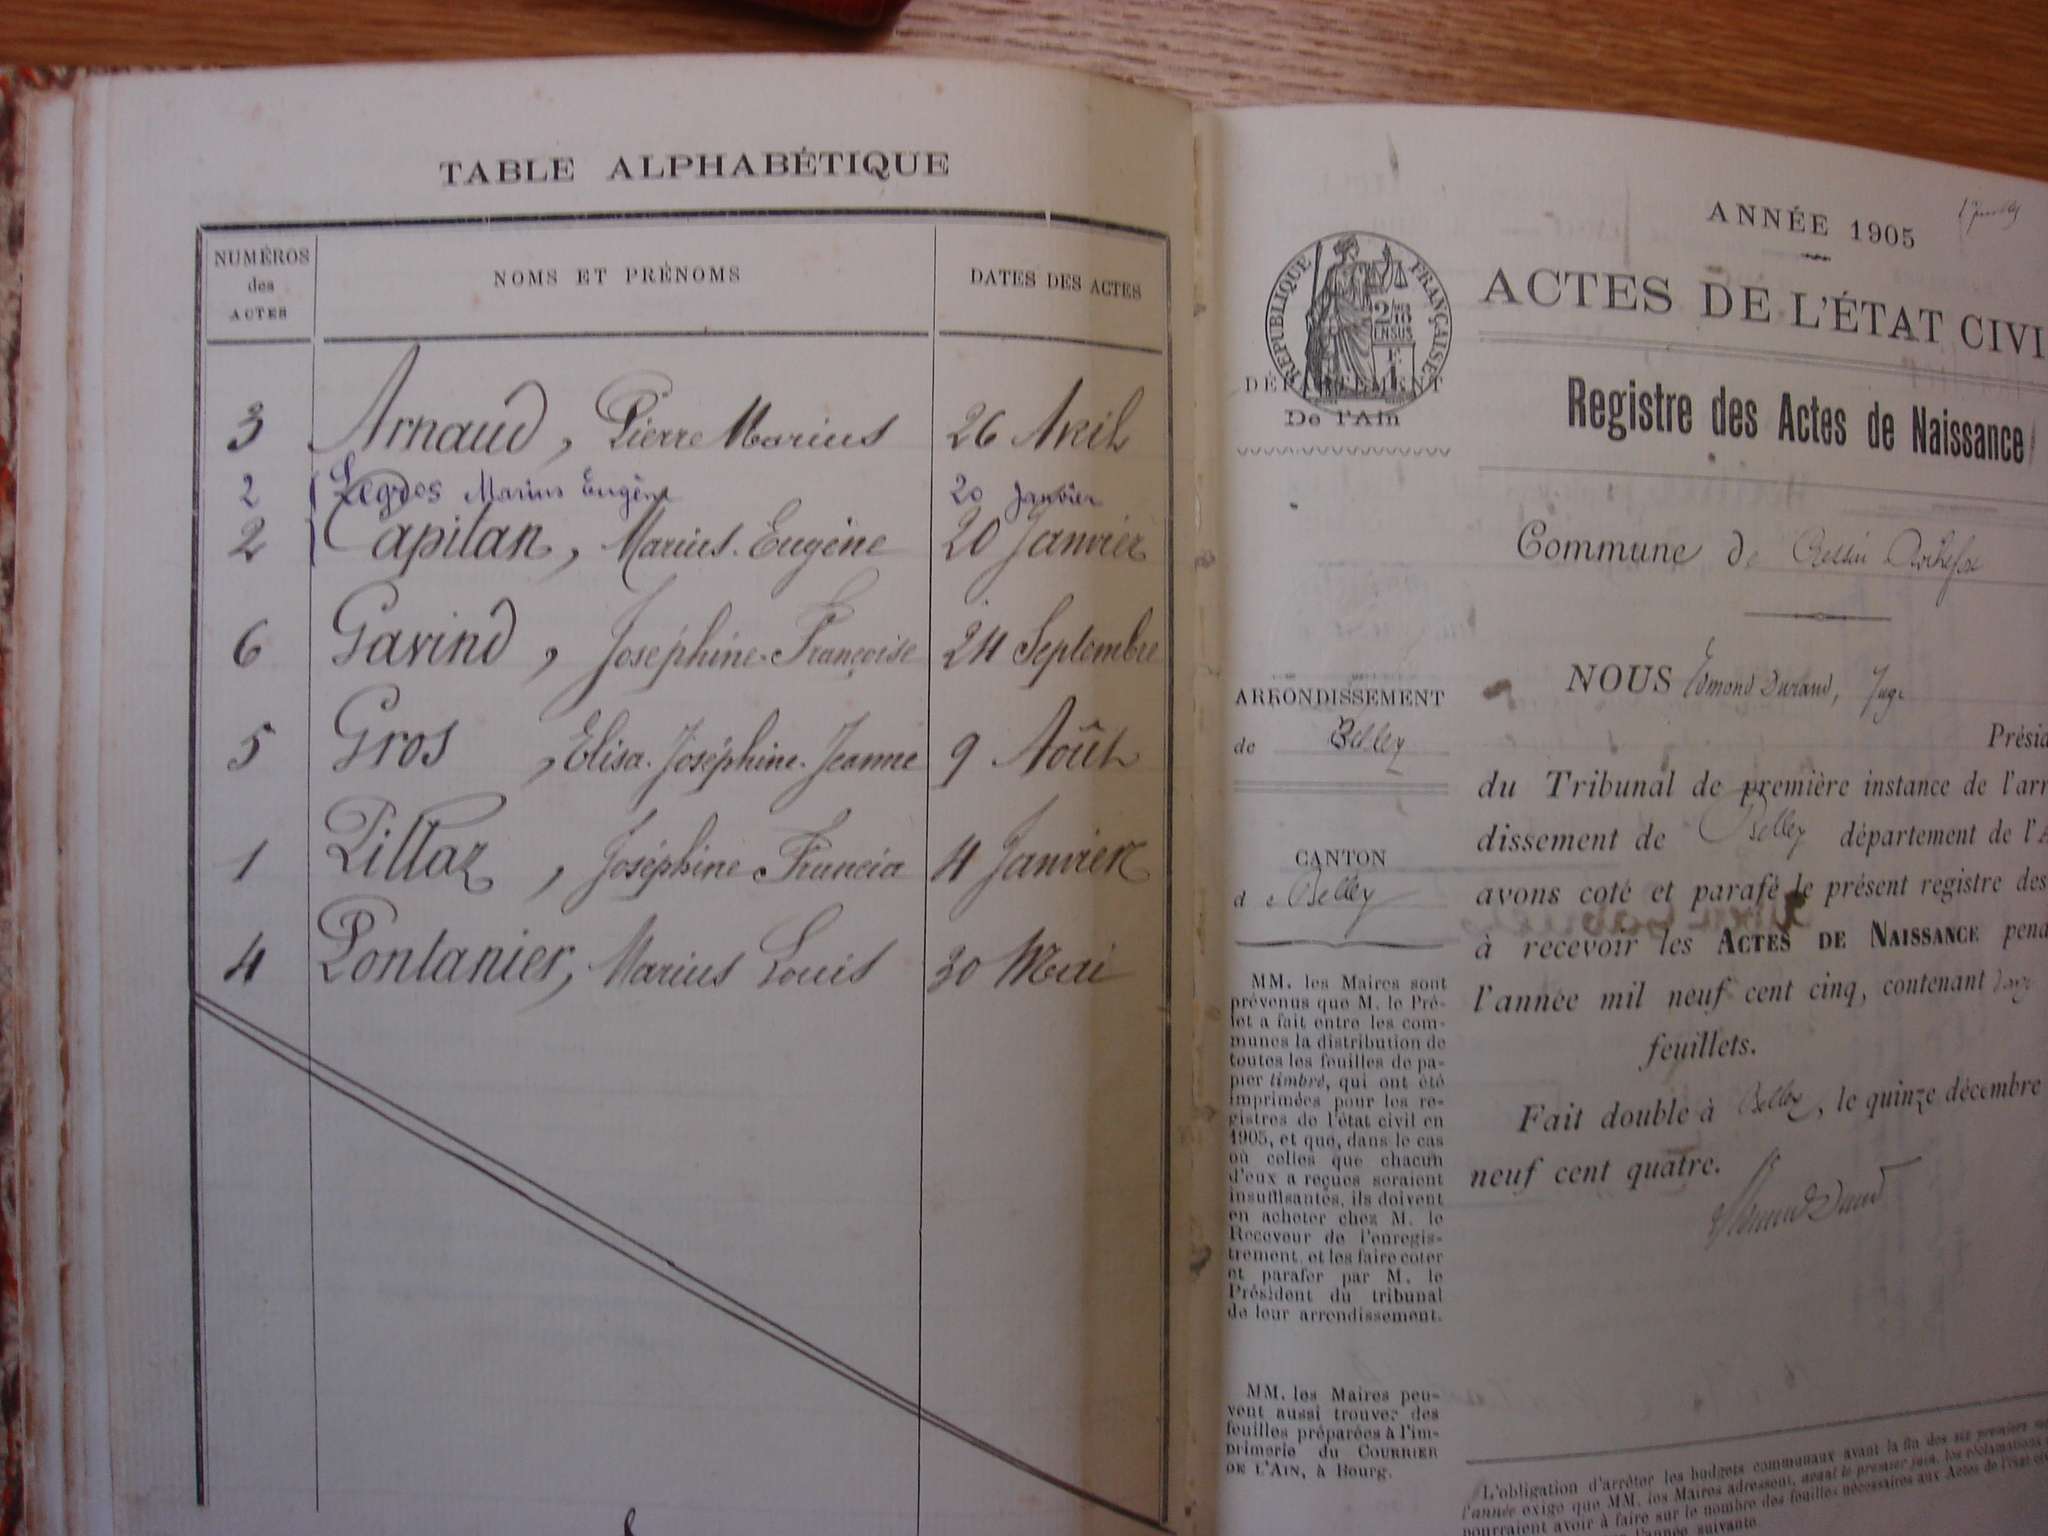 TABLE ALPHABÉTIQUE
NUMÉROS des ACTES
NOMS ET PRÉNOMS
DATES DES ACTES
3 Arnaud, Pierre Marius 26 Avril
2 Marius Eugène 20 Janvier
2 Capitan, Marius-Eugène 20 Janvier
6 Gavind, Joséphine-Françoise 24 Septembre
5 Gros, Elisa-Joséphine-Jeanne 9 Août
1 Pillaz, Joséphine Francia 4 Janvier
4 Pontanier, Marius Louis 30 Mai
ANNÉE 1905
RÉPUBLIQUE FRANÇAISE
ACTES DE L'ÉTAT CIVI
DÉPARTEMENT
De l'Ain
Registre des Actes de Naissance
Commune de Cressin Rochefort
NOUS Edmond Durand, Juge
Présid
ARRONDISSEMENT
de Belley
du Tribunal de première instance de l'arr
dissement de Belley département de l'A
CANTON
de Belley
avons coté et parafé le présent registre des
à recevoir les ACTES DE NAISSANCE pend
l'année mil neuf cent cinq, contenant
feuillets.
Fait double à Belley, le quinze décembre
neuf cent quatre.
MM. les Maires sont
prévenus que M. le Pré-
fet a fait entre les com-
munes la distribution de
toutes les feuilles de pa-
pier timbré, qui ont été
imprimées pour les re-
gistres de l'état civil en
1905, et que, dans le cas
où celles que chacun
d'eux a reçues seraient
insuffisantes, ils doivent
en acheter chez M. le
Receveur de l'enregis-
trement, et les faire coter
et parafer par M. le
Président du tribunal
de leur arrondissement.
MM. les Maires peu-
vent aussi trouver des
feuilles préparées à l'im-
primerie du COURRIER
DE L'AIN, à Bourg.
L'obligation d'arrêter les budgets communaux avant la fin des six premiers
l'année exige que MM. les Maires adressent, avant le premier juin, les réclamations
pourraient avoir à faire sur le nombre des feuilles nécessaires aux Actes de l'état
l'année suivante.